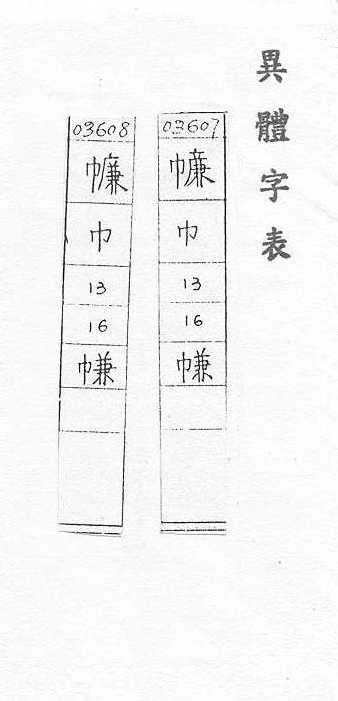 異體字表
03607
㡘
巾
13
16
㡐
03608
㡘
巾
13
16
㡐